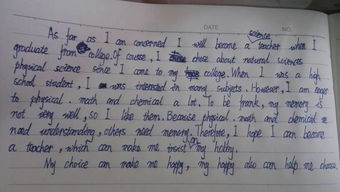 DATE NO.
As far as I am concerned I will become a science teacher when I
graduate from college. Of course, I chose about natural sciences
physical science since I come to my college. When I was a high
school student, I was interested in many subjects. However, I am eager
to physical, math and chemical a lot. To be frank, my memory is
not very well, so I like them. Because physical, math and chemical
need understanding, others need memory. Therefore, I hope I can become
a teacher, which can make me insist on my hobby.
My choice can make me happy, my happy also can help me choose.